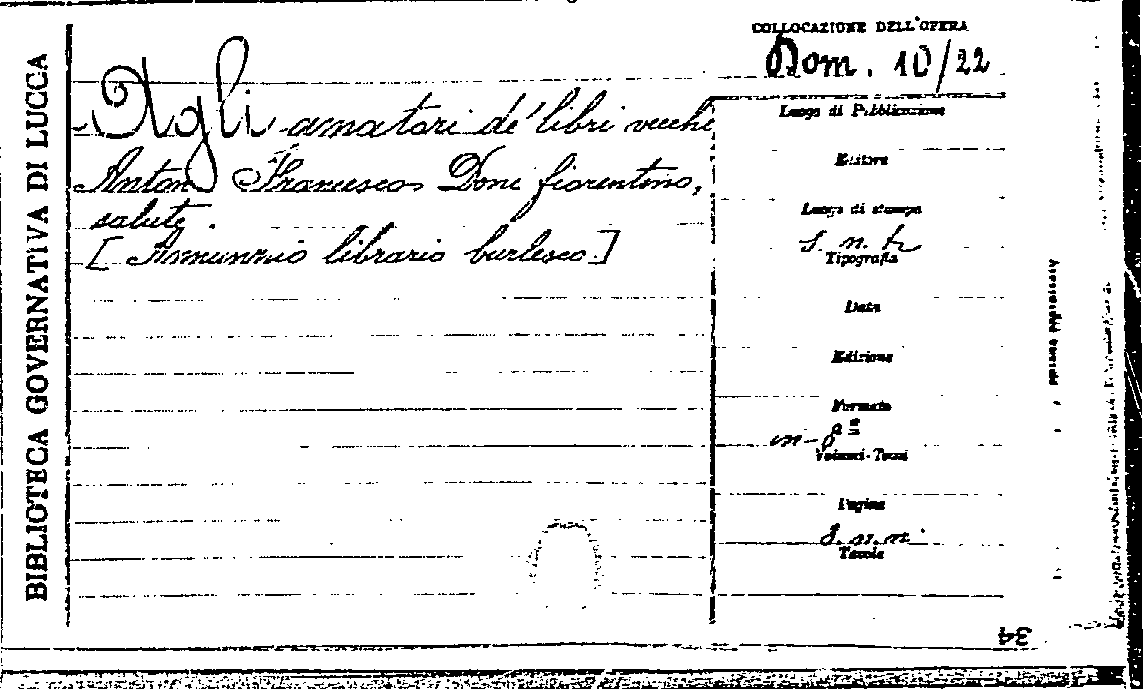 BIBLIOTECA GOVERNATIVA DI LUCCA
COLLOCAZIONE DELL'OPERA
Dom. 10/22
Agli amatori de' libri vecchi
Anton Francesco Doni fiorentino,
salute.
[Annunzio librario burlesco]
Luogo di Pubblicazione
Editore
Luogo di stampa
s. n. t.
Tipografia
Data
Edizione
Formato
in-8º
Volumi-Tomi
Pagine
s. n. n.
Tavole
34